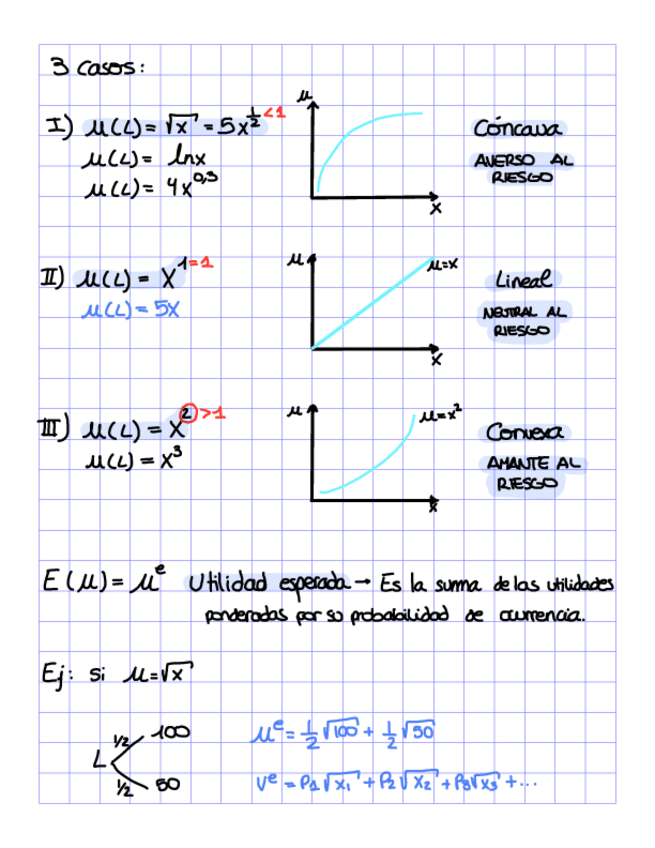 3 casos:
I) μ(L) = √x = 5x^½ <1
μ(L) = lnx
μ(L) = 4x^0,3
μ
x
Cóncava
AVERSO AL
RIESGO
II) μ(L) = X^1 =1
μ(L) = 5X
μ
μ=x
x
Lineal
NEUTRAL AL
RIESGO
III) μ(L) = X^2 >1
μ(L) = X^3
μ
μ=x^2
x
Convexa
AMANTE AL
RIESGO
E(μ) = μ^e Utilidad esperada → Es la suma de las utilidades
ponderadas por su probabilidad de ocurrencia.
Ej: si μ=√x
L
1/2 100
1/2 50
μ^e = 1/2 √100 + 1/2 √50
V^e = P1 √x1 + P2 √x2 + P3 √x3 + ...